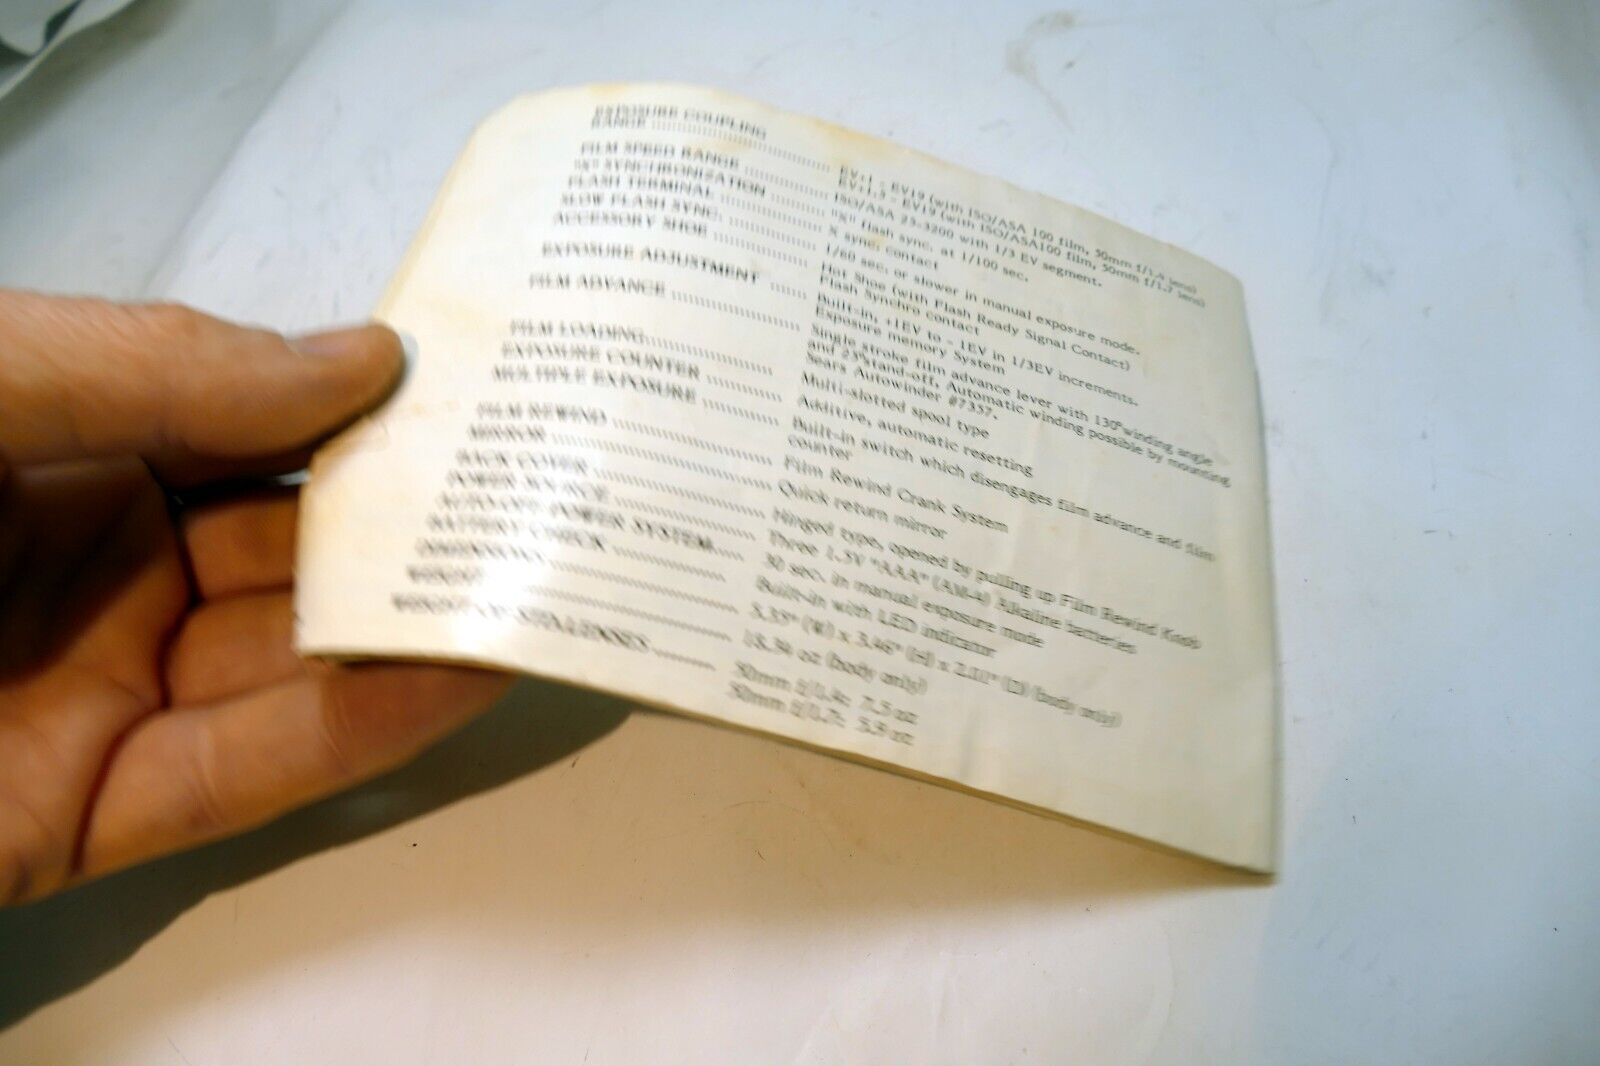 EXPOSURE COUPLING
RANGE .......... EV+1 - EV19 (with ISO/ASA 100 film, 50mm f/1.4 lens)
EV+1.5 - EV19 (with ISO/ASA100 film, 50mm f/1.7 lens)
FILM SPEED RANGE .......... ISO/ASA 25-3200 with 1/3 EV segment.
"X" SYNCHRONIZATION .......... "X" flash sync. at 1/100 sec.
FLASH TERMINAL .......... X sync. contact
SLOW FLASH SYNC. .......... 1/60 sec. or slower in manual exposure mode.
ACCESSORY SHOE .......... Hot Shoe (with Flash Ready Signal Contact)
Flash Synchro contact
EXPOSURE ADJUSTMENT ....... Built-in, +1EV to - 1EV in 1/3EV increments.
Exposure memory System
FILM ADVANCE .......... Single stroke film advance lever with 130° winding angle
and 23° stand-off, Automatic winding possible by mounting
Sears Autowinder #7357.
FILM LOADING .......... Multi-slotted spool type
EXPOSURE COUNTER .......... Additive, automatic resetting
MULTIPLE EXPOSURE .......... Built-in switch which disengages film advance and film
counter
FILM REWIND .......... Film Rewind Crank System
MIRROR .......... Quick return mirror
BACK COVER .......... Hinged type, opened by pulling up Film Rewind Knob
POWER SOURCE .......... Three 1.5V "AAA" (AM-4) Alkaline batteries
AUTO-OFF POWER SYSTEM..... 30 sec. in manual exposure mode
BATTERY CHECK .......... Built-in with LED indicator
DIMENSIONS .......... 5.35" (W) x 3.46" (H) x (D) (body only)
WEIGHT .......... 18.34 oz (body only)
WEIGHT OF STD. LENSES .......... 50mm f/1.4: 7.5 oz
50mm f/1.7: 5.9 oz